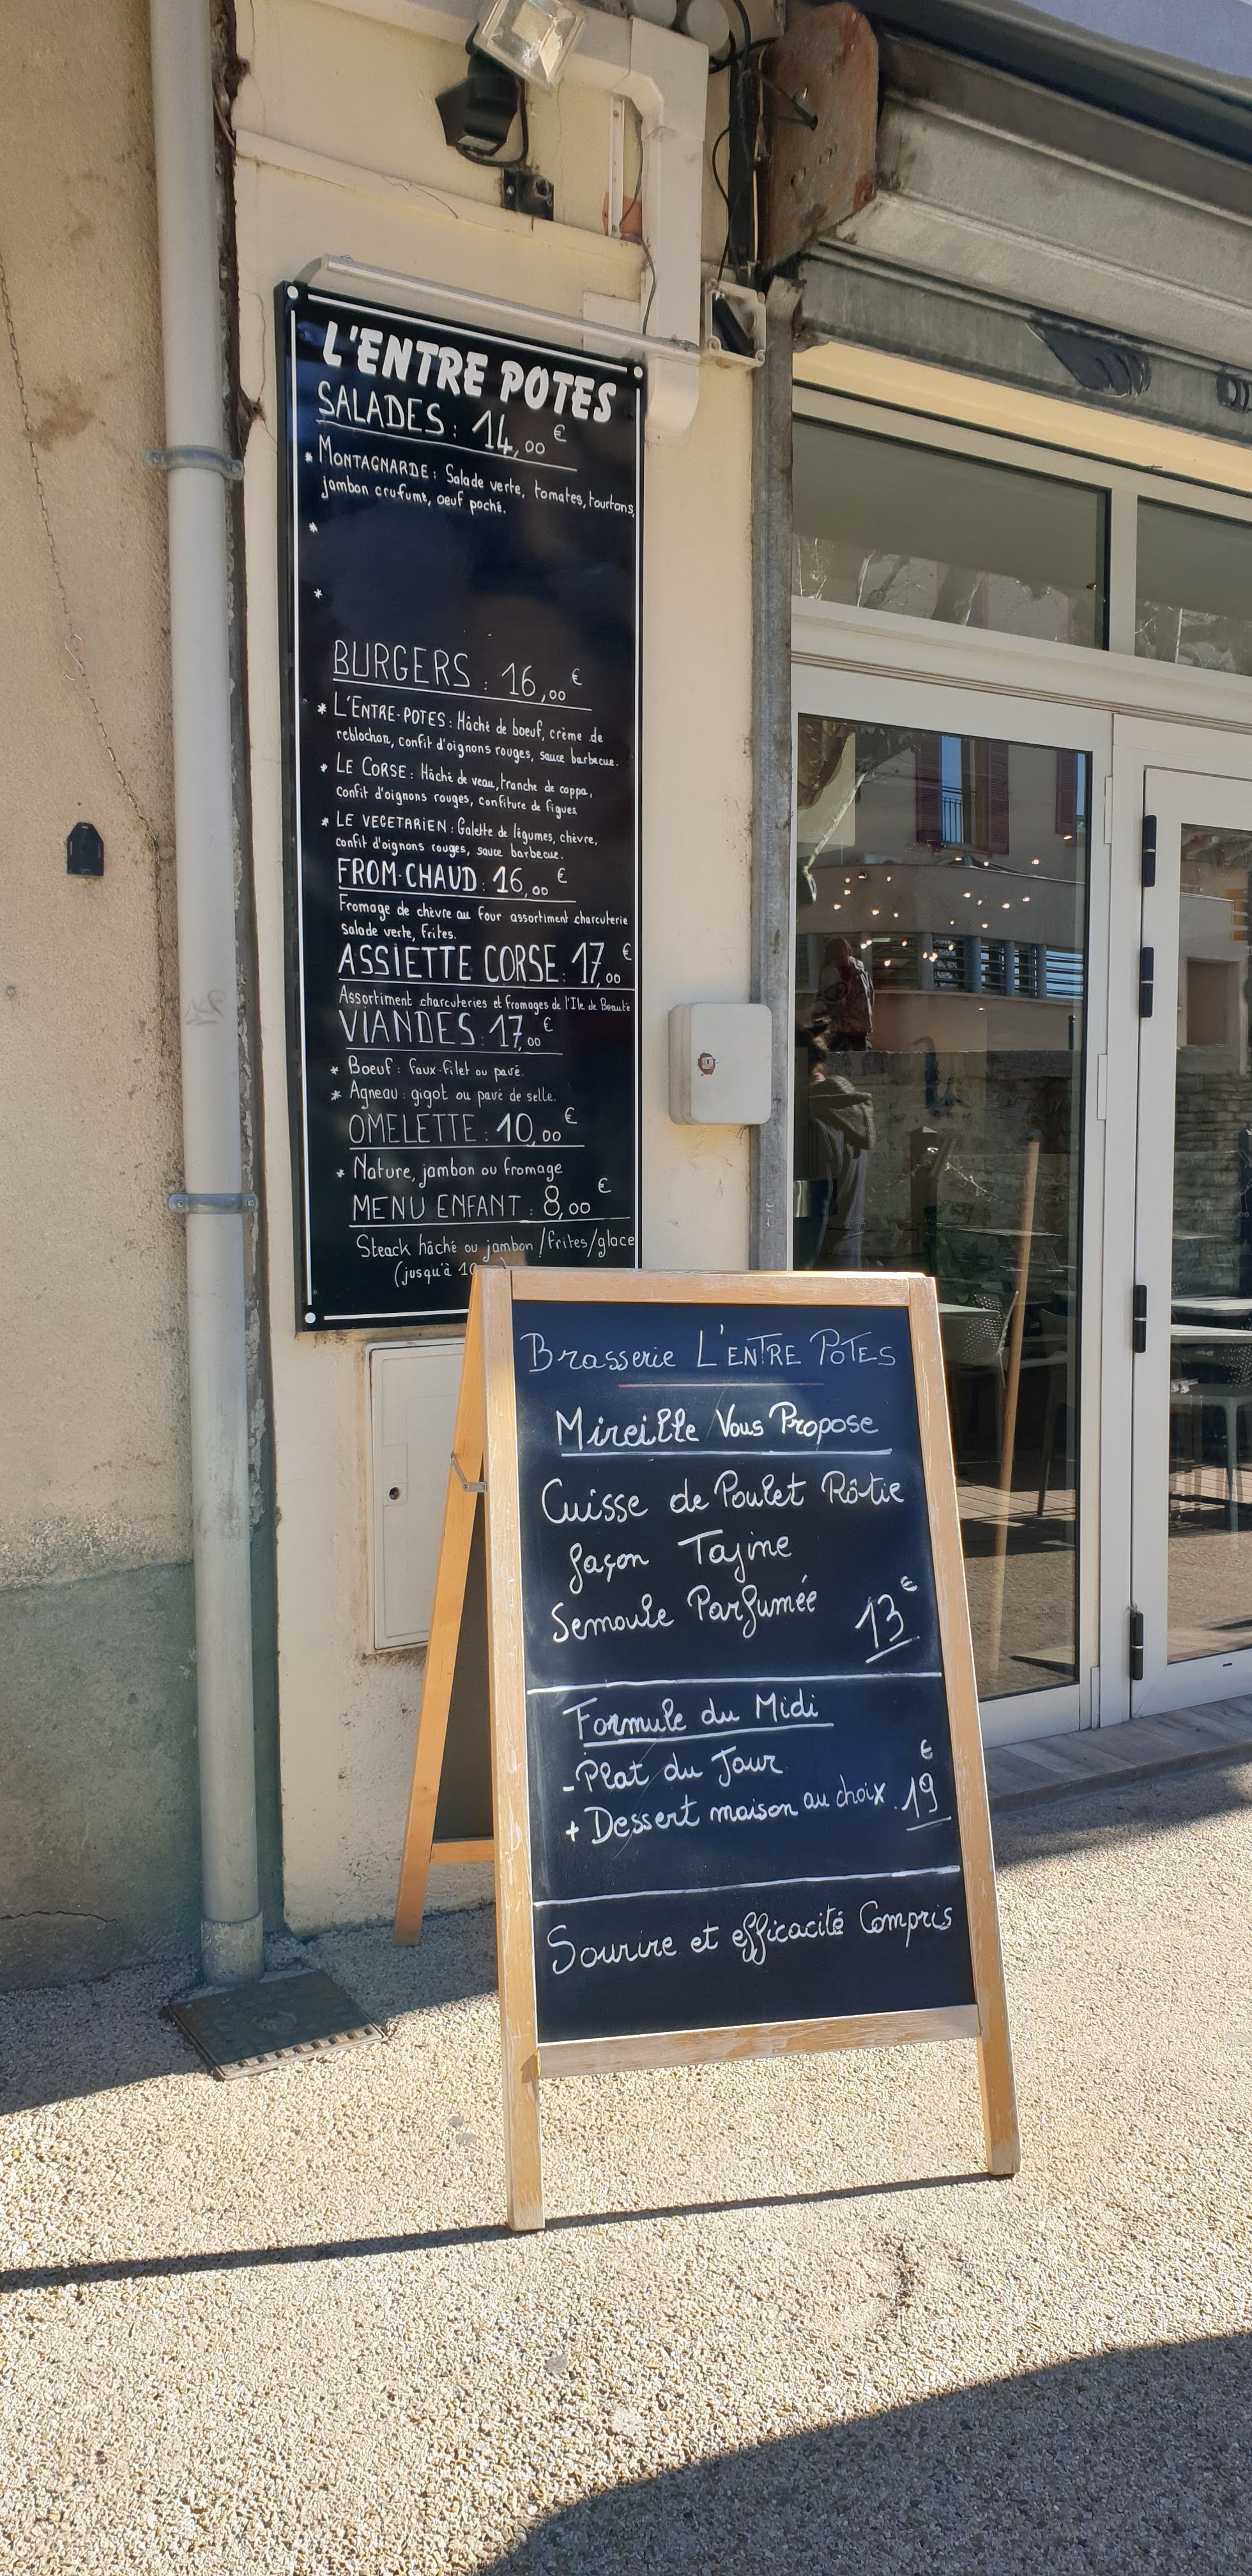 L'ENTRE POTES
SALADES : 14,00 €
* MONTAGNARDE : Salade verte, tomates, tourtons,
jambon cru fumé, oeuf poché.
*
*
BURGERS : 16,00 €
* L'ENTRE-POTES : Hâché de boeuf, crème de
reblochon, confit d'oignons rouges, sauce barbecue.
* LE CORSE : Hâché de veau, tranche de coppa,
confit d'oignons rouges, confiture de figues
* LE VEGETARIEN : Galette de légumes, chèvre,
confit d'oignons rouges, sauce barbecue.
FROM-CHAUD : 16,00 €
Fromage de chèvre au four assortiment charcuterie
salade verte, frites.
ASSIETTE CORSE : 17,00 €
Assortiment charcuteries et fromages de l'Ile de Beauté
VIANDES : 17,00 €
* Boeuf : faux-filet ou pavé.
* Agneau : gigot ou pavé de selle.
OMELETTE : 10,00 €
* Nature, jambon ou fromage
MENU ENFANT : 8,00 €
Steack hâché ou jambon / frites / glace
(jusqu'à 10
Brasserie L'ENTRE POTES
Mireille Vous Propose
Cuisse de Poulet Rôtie
façon Tajine
Semoule Parfumée 13 €
Formule du Midi
- Plat du Jour
+ Dessert maison au choix 19 €
Sourire et efficacité Compris